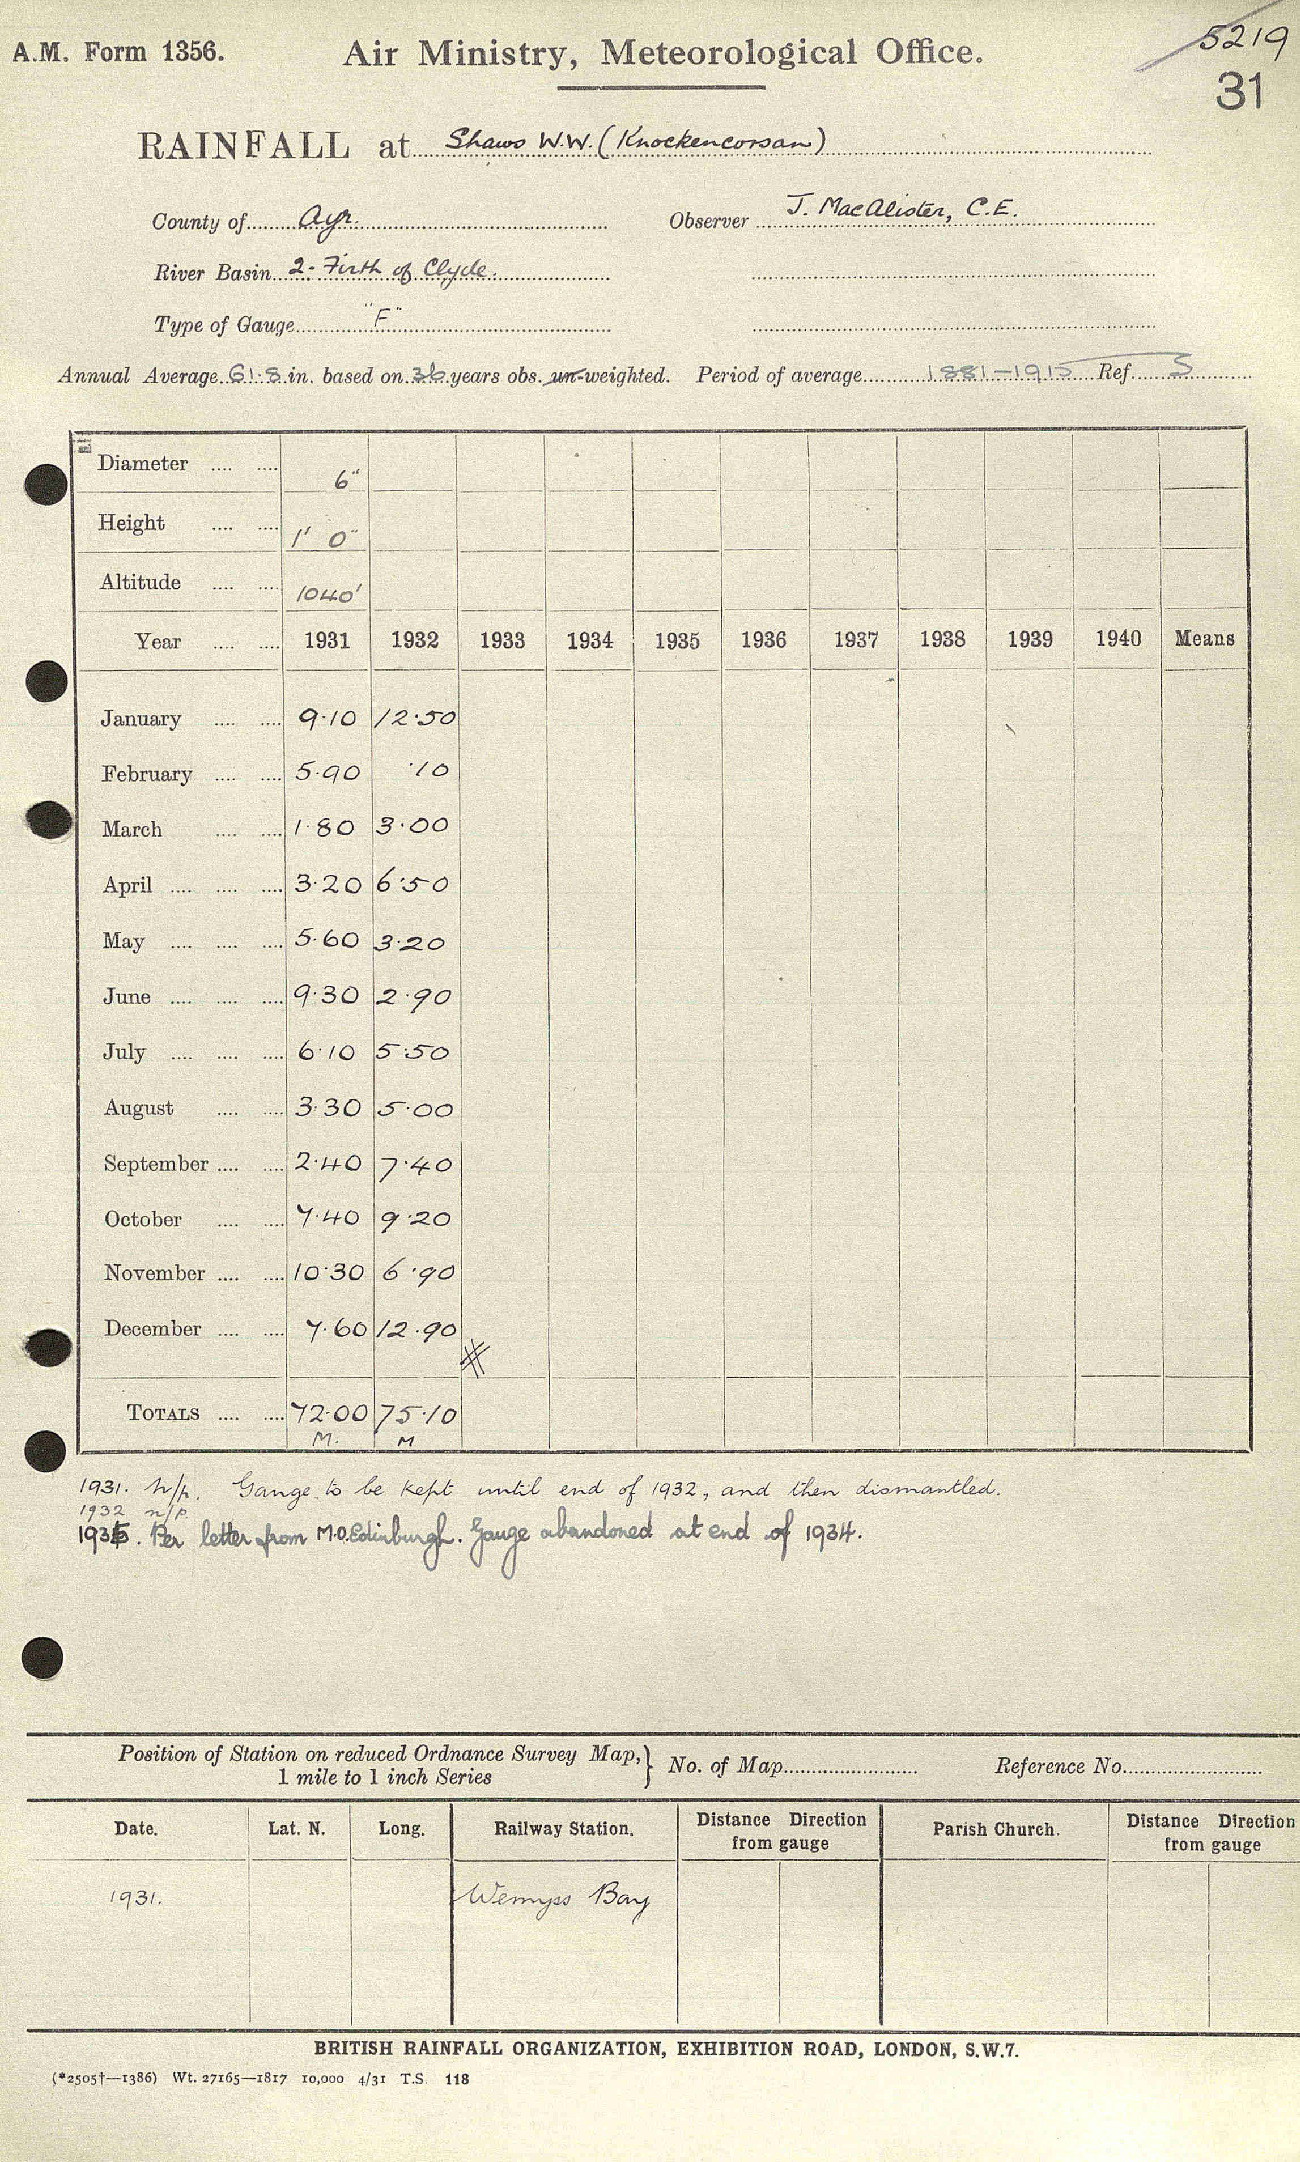 5219
A.M. Form 1356. Air Ministry, Meteorological Office.
31
RAINFALL at Shaws W.W. (Knockencorsan)
County of Ayr. Observer J. MacAlister, C.E.
River Basin 2- Firth of Clyde.
Type of Gauge "F"
Annual Average 61.8 in. based on 36 years obs. un-weighted. Period of average 1881-1915 Ref. S
Diameter .... .... 6"
Height .... .... 1' 0"
Altitude .... .... 1040'
Year .... .... 1931 1932 1933 1934 1935 1936 1937 1938 1939 1940 Means
January .... .... 9.10 12.50
February .... .... 5.90 .10
March .... .... 1.80 3.00
April .... .... .... 3.20 6.50
May .... .... .... 5.60 3.20
June .... .... .... 9.30 2.90
July .... .... .... 6.10 5.50
August .... .... 3.30 5.00
September .... .... 2.40 7.40
October .... .... 7.40 9.20
November .... .... 10.30 6.90
December .... .... 7.60 12.90
TOTALS .... .... 72.00 75.10
M. M
1931. n/p. Gauge to be kept until end of 1932, and then dismantled.
1932 n/p
1935. Per letter from M.O. Edinburgh. Gauge abandoned at end of 1934.
Position of Station on reduced Ordnance Survey Map, } No. of Map Reference No.
1 mile to 1 inch Series
Date. Lat. N. Long. Railway Station. Distance Direction from gauge Parish Church. Distance Direction from gauge
1931. Wemyss Bay
BRITISH RAINFALL ORGANIZATION, EXHIBITION ROAD, LONDON, S.W.7.
(*2505†—1386) Wt. 27165—1817 10,000 4/31 T.S. 118